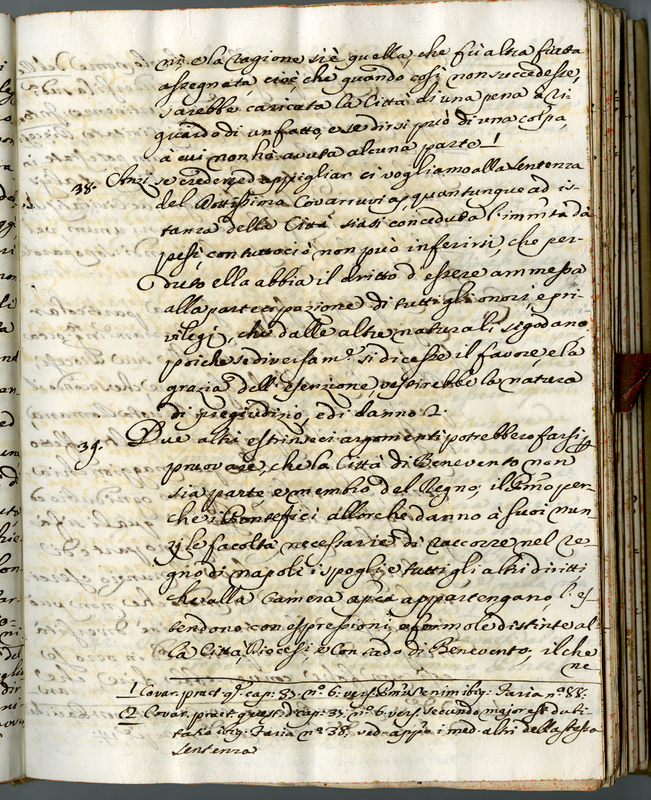 ni. e la ragione si è quella, che fù altra fiata
assegnata, cioè, che quando così non succedesse,
sarebbe caricata la Città di una pena a ri
guardo di un fatto, e se dirsi può di una colpa,
a cui non hà avuta alcuna parte 1
38. Anzi se credere, ed appigliar ci vogliamo alla sentenza
del Dottissimo Covarruvias, quantunque ad is
tanza della Città siasi conceduta l'immtà dà
pesi, con tuttociò non può inferirsi, che per
duto ella abbia il dritto d'essere ammessa
alla partecipazione di tutti gli onori, e pri
vilegj, che dalle altre naturali si godano
poiche se diversamte. si dicesse il favore, e la
grazia dell'esenzione vestirebbe la natura
di pregiudizio, e di danno 2.
39. Due altri estrinseci argomenti potrebbero farsi p
pruovare, che la Città di Benevento non
sia parte e membro del Regno; il Pmo per-
che i Pontefici allorche danno à suoi nun
zj le facoltà necessarie di raccorre nel re
gno di napoli i spoglj, e tutti gli altri diritti
che alla Camera apca appartengano l'es
tendono con espressioni, e formole distinte al
la Città, Diocesi, e Contado di Benevento, il che
ne
1 Covar. pract. qq. cap: 37. no. 6: vers. ibiq: Faria no 88:
2 Covar. pract. quest. d. cap: 37. no. 6. vers. secundo major est dubi
tatio ibiq: Faria no 38. ved. appo i med. altri della stessa
sentenza